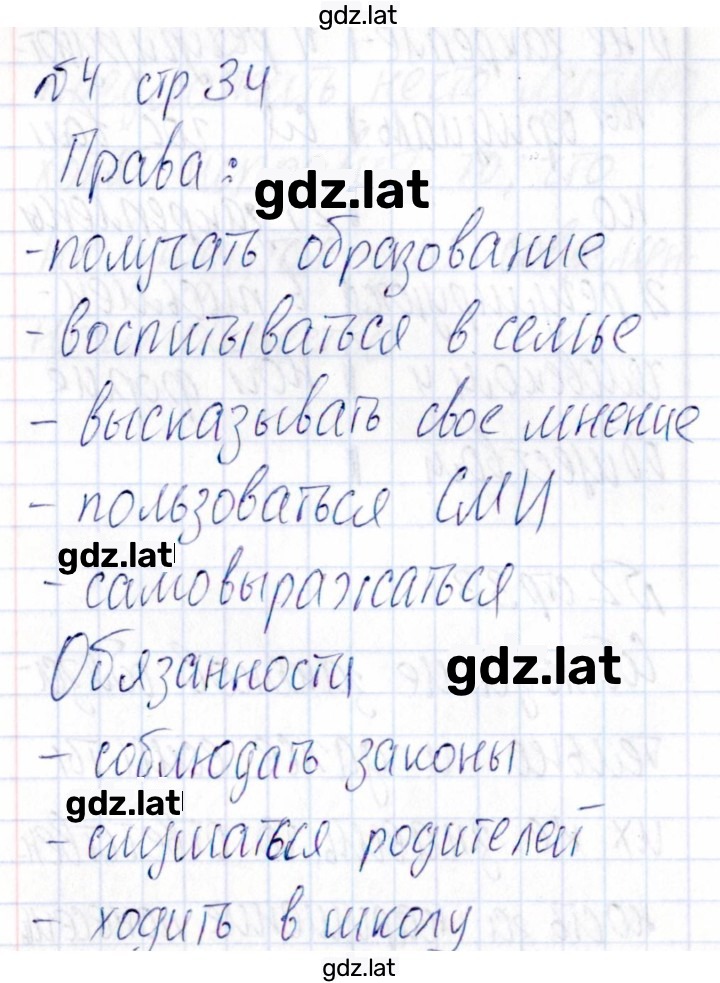 gdz.lat
№4 стр 34
Права:
gdz.lat
-получать образование
-воспитываться в семье
- высказывать свое мнение
- пользоваться СМИ
gdz.lat
- самовыражаться
Обязанности
gdz.lat
- соблюдать законы
gdz.lat
- слушаться родителей
- ходить в школу
gdz.lat